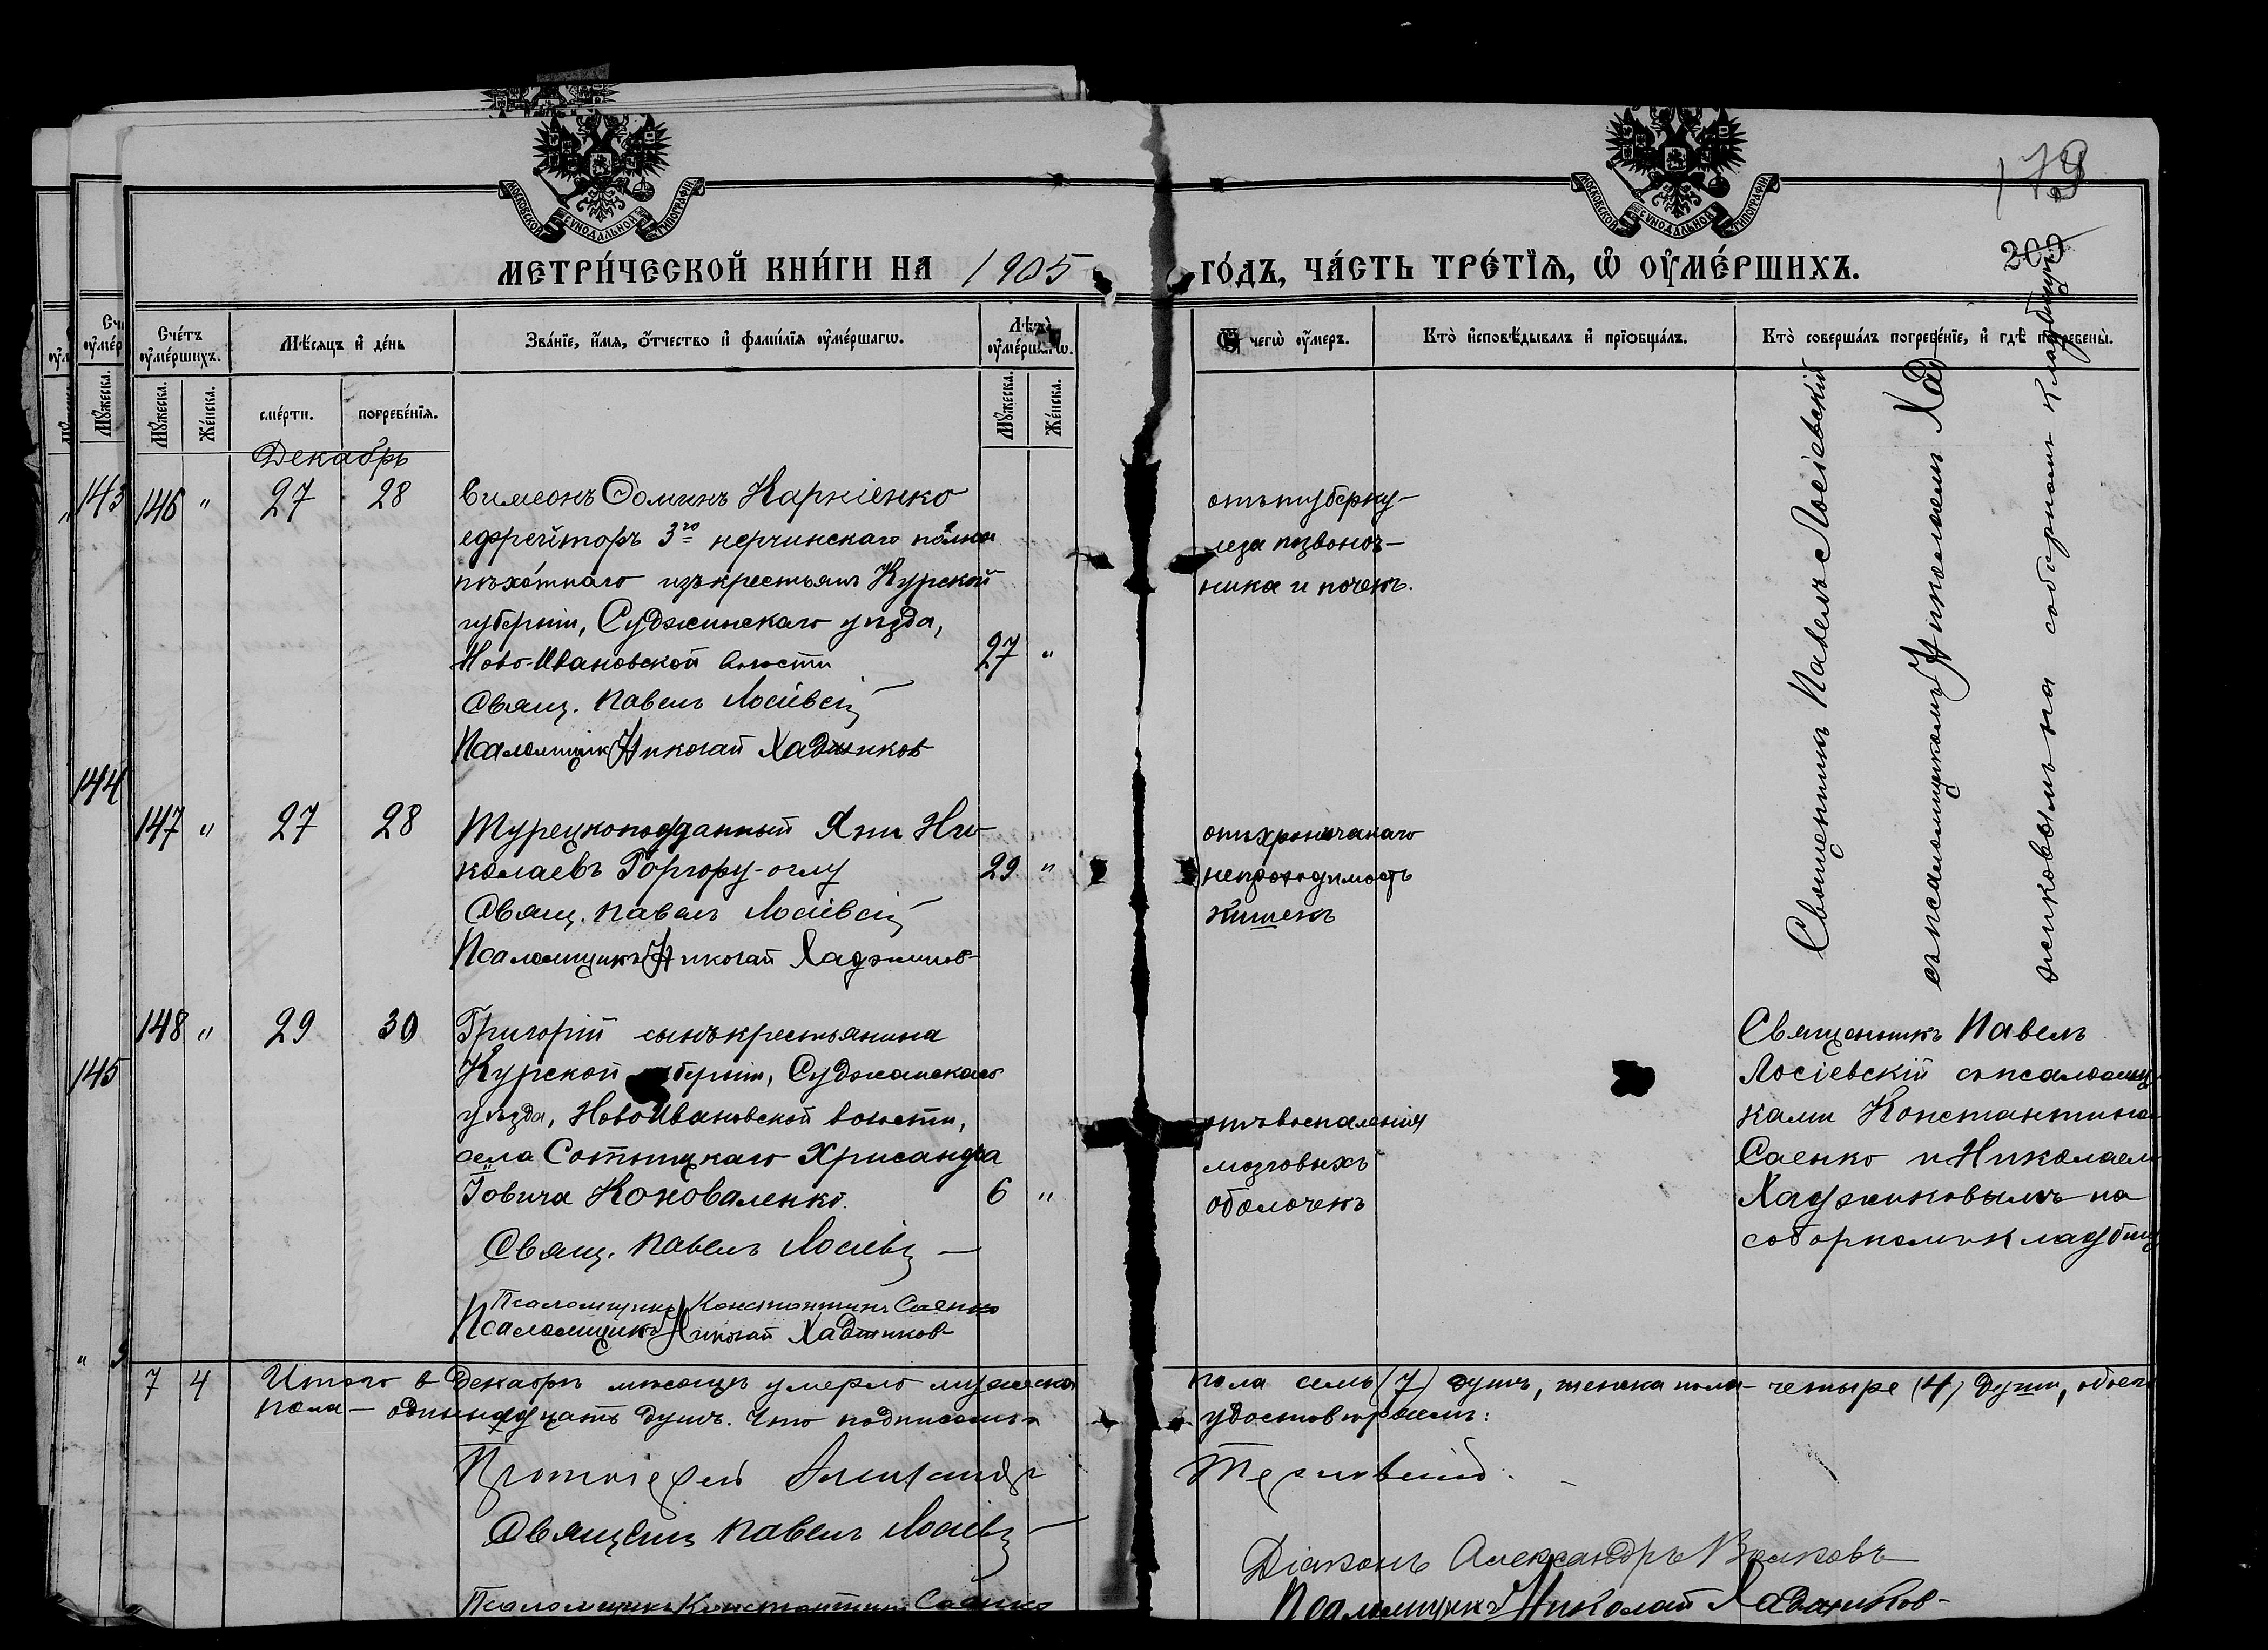 МОСКОВСКОЙ СѴНОДАЛЬНОЙ ТИПОГРАФІИ
МОСКОВСКОЙ СѴНОДАЛЬНОЙ ТИПОГРАФІИ
179
200
МЕТРИ́ЧЕСКОЙ КНИ́ГИ НА 1905
ГО́ДЪ, ЧА́СТЬ ТРЕ́ТЇѦ, Ѡ҆ ОУ҆МЕ́РШИХЪ.
Сче́тъ оу҆ме́ршихъ.
Мѣ́сяцъ и҆ де́нь
Зва́нїе, и҆́мѧ, ѻ҆́тчество и҆ фами́лїѧ оу҆ме́ршагѡ.
Лѣта̀ оу҆ме́ршагѡ.
чегѡ̀ оу҆́меръ.
Кто̀ и҆сповѣ́дывалъ и҆ прїѻбща́лъ.
Кто̀ соверша́лъ погребе́нїе, и҆ гдѣ̀ погребены̀.
Мꙋ́жеска.
Же́нска.
сме́рти.
погребе́нїѧ.
Мꙋ́жеска.
Же́нска.
Декабрь
143
146 " 27 28 Симеонъ Фоминъ
ефрейторъ 3го нерчинскаго полка
пѣхотнаго изъ крестьянъ Курской
губерніи, Суджинскаго уѣзда,
Ново-Ивановской волости 27 "
Свящ. Павелъ Лосіевскій
Псаломщикъ Николай Хаджиковъ
отъ туберку-
леза позвоноч-
ника и почекъ.
Священникъ Павелъ Лосіевскій
съ псаломщикомъ Николаемъ Хад
жиковымъ на соборномъ кладбищѣ
144
147 " 27 28 Турецкоподданный Яни Ни-
колаевъ Горгору-оглу 29 "
Свящ. Павелъ Лосіевскій
Псаломщикъ Николай Хаджиковъ
отъ хроническаго
непроходимость
кишекъ
148 " 29 30 Григорій сынъ крестьянина
Курской губерніи, Суджанскаго
145
уѣзда, Ново Ивановской волости,
села Сотницкаго Хрисанфа
Іовича Коноваленко. 6 "
Свящ. Павелъ Лосіевскій
Псаломщикъ Константинъ Саенко
Псаломщикъ Николай Хаджиковъ
отъ воспаленія
мозговыхъ
оболочекъ
Священникъ Павелъ
Лосіевскій съ псаломщи
ками Константиномъ
Саенко и Николаемъ
Хаджиковымъ на
соборномъ кладбищѣ
7 4 Итого в Декабрѣ мѣсяцѣ умерло мужеска
пола семь (7) душъ, женска пола - четыре (4) души, обоего
пола - одиннадцать душъ. Что подписомъ и
удостовѣряемъ:
Протоіерей Александръ
Священ. Павелъ Лосіевскій
Діаконъ Александръ Волковъ
Псаломщикъ Константинъ Саенко
Псаломщикъ Николай Хаджиковъ